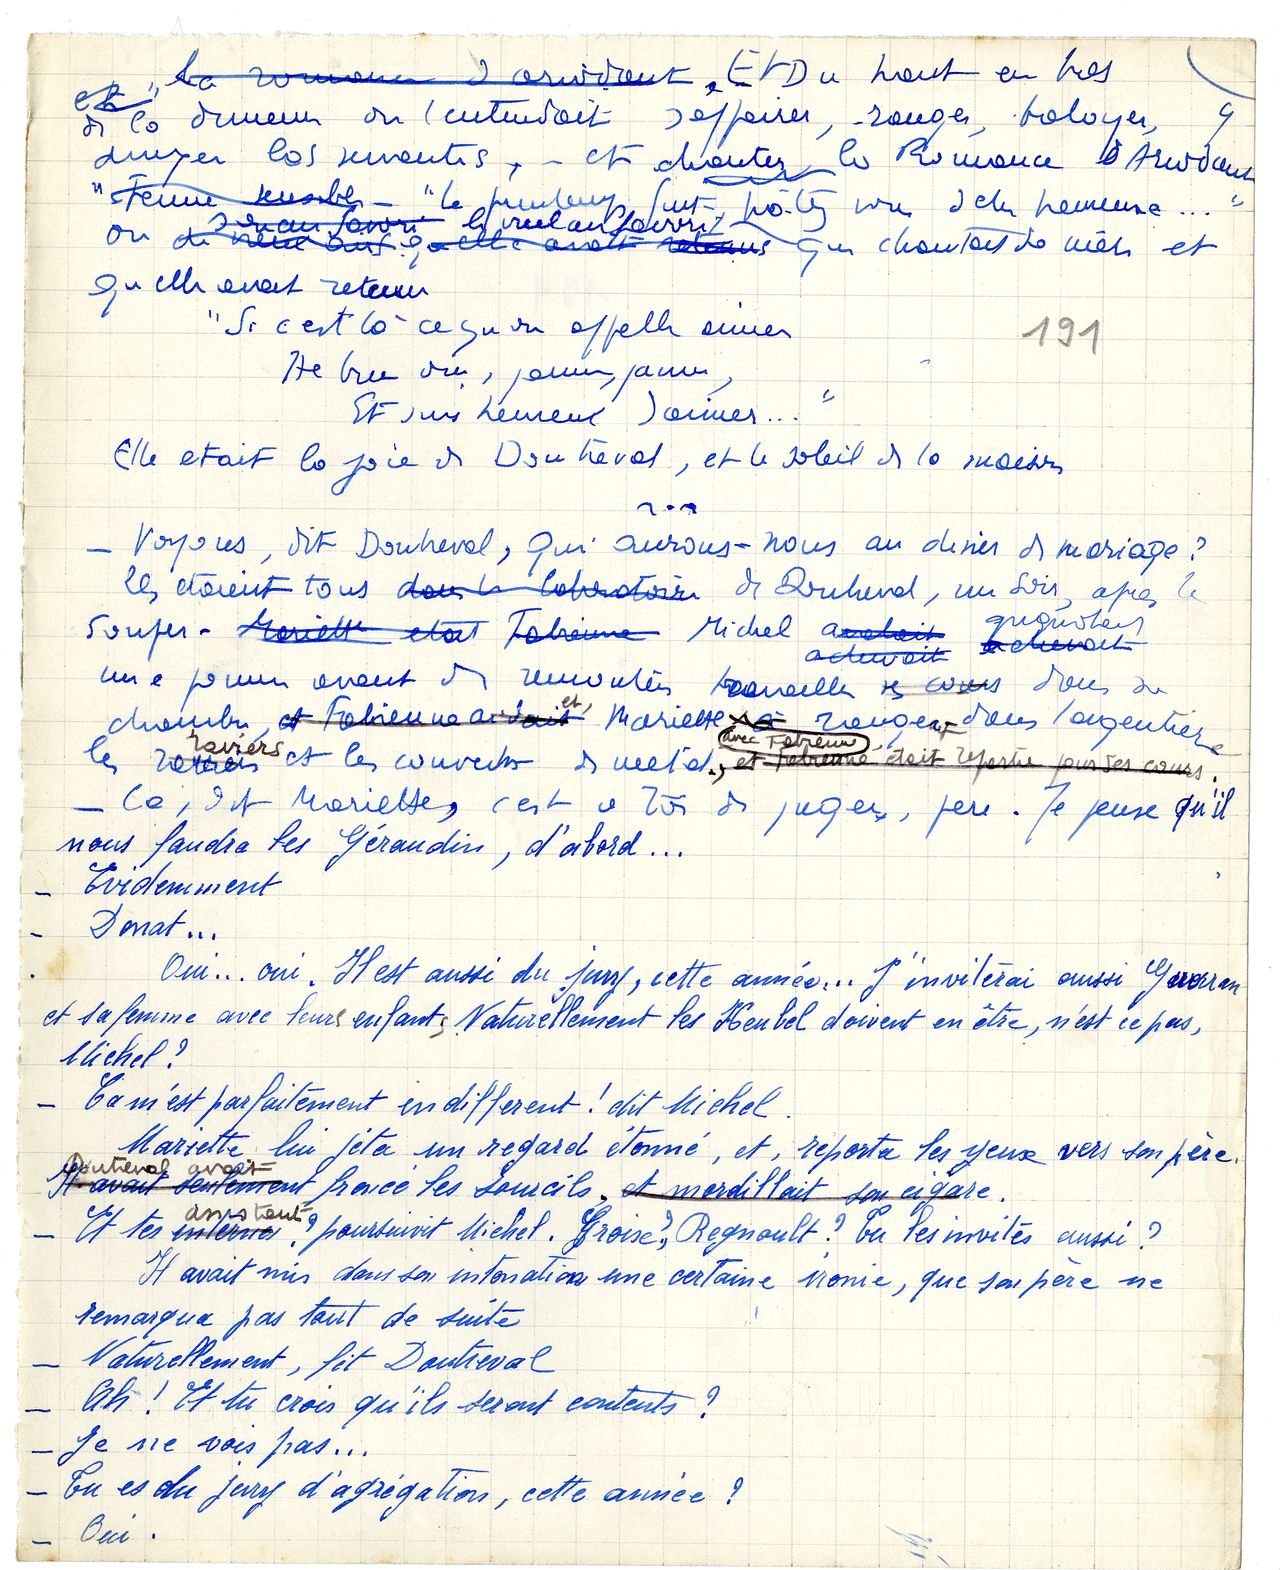 et " ~~La romance d'ariodant~~. Et Du haut en bas
de la demeure on l'entendait s'affairer, ranger, balayer, 9
diriger les servantes, - et chanter la Romance d'Ariodant
" Femme sensible - " le printemps
~~qu'elle avait retenus~~ que chantait sa mère et
qu'elle avait retenu
"Si c'est là ce qu'on appelle aimer
191
jamais, jamais,
Et suis heureux d'aimer..."
Elle était la joie de Doutreval, et le soleil de la maison
- Voyons, dit Doutreval, qui aurons-nous au diner de mariage?
Ils étaient tous ~~dans le laboratoire~~ de Doutreval, un soir, après le
souper. ~~Mariette était Fabienne~~ Michel ~~avalait~~ ~~achevait~~ grignotait ~~achevait~~
une pomme avant de remonter travailler ~~ses cours~~ dans sa
chambre, ~~et Fabienne aidait~~ et, Mariette ~~à~~ rangeait dans l'argentière
les raviers et les couverts de métal, avec Fabienne ~~et Fabienne était repartie pour ses cours~~.
- Ca, dit Mariette, c'est à toi de juger, père. Je pense qu'il
nous faudra les Géraudin, d'abord...
- Evidemment
- Donat...
Oui... oui. Il est aussi du jury, cette année... J'inviterai aussi Guerran
et sa femme avec leurs enfants, Naturellement les Heubel doivent en être, n'est ce pas,
Michel?
- Ca m'est parfaitement indifferent! dit Michel.
Mariette lui jeta un regard étonné, et, reporta les yeux vers son père.
Doutreval avait
~~Il avait seulement~~ froncé les sourcils. ~~et mordillait son cigare~~.
assistants
- Et tes ~~internes~~? poursuivit Michel. Groix?, Regnoult? Tu les invites aussi?
Il avait mis dans son intonation une certaine ironie, que son père ne
remarqua pas tout de suite
- Naturellement, fit Doutreval
- Ah! Et tu crois qu'ils seront contents?
- Je ne vois pas...
- Tu es du jury d'agrégation, cette année?
- Oui.